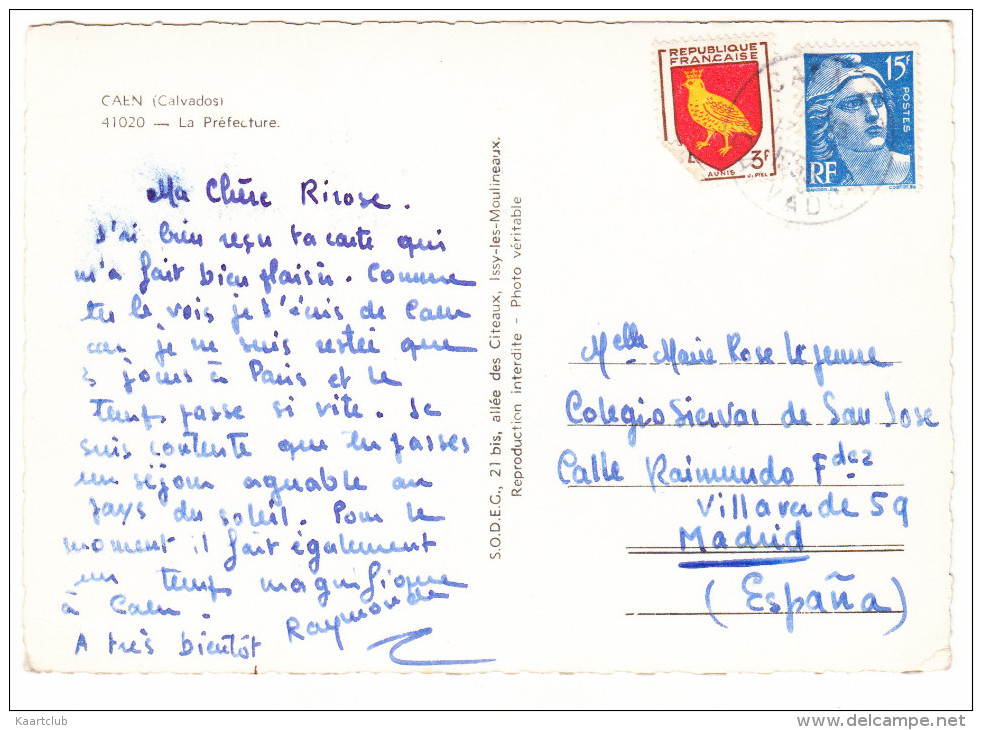 CAEN (Calvados)
41020 — La Préfecture.
Ma Chère Rirose.
J'ai bien reçu ta carte qui
m'a fait bien plaisir. Comme
tu le vois je t'écris de Caen
car je ne suis restée que
3 jours à Paris et le
temps passe si vite. Je
suis contente que tu passes
un séjour agréable au
pays du soleil. Pour le
moment il fait également
un temps magnifique
à Caen.
Raymonde
A très bientôt
S.O.D.E.C., 21 bis, allée des Citeaux, Issy-les-Moulineaux.
Reproduction interdite - Photo véritable
REPUBLIQUE
FRANÇAISE
3F
AUNIS
J. PIEL
15F
POSTES
RF
GANDON
Melle Marie Rose Lejeune
Colegio Siervas de San Jose
Calle Raimundo Fdez
Villaverde 59
Madrid
(España)
Kaartclub
delcampe.net